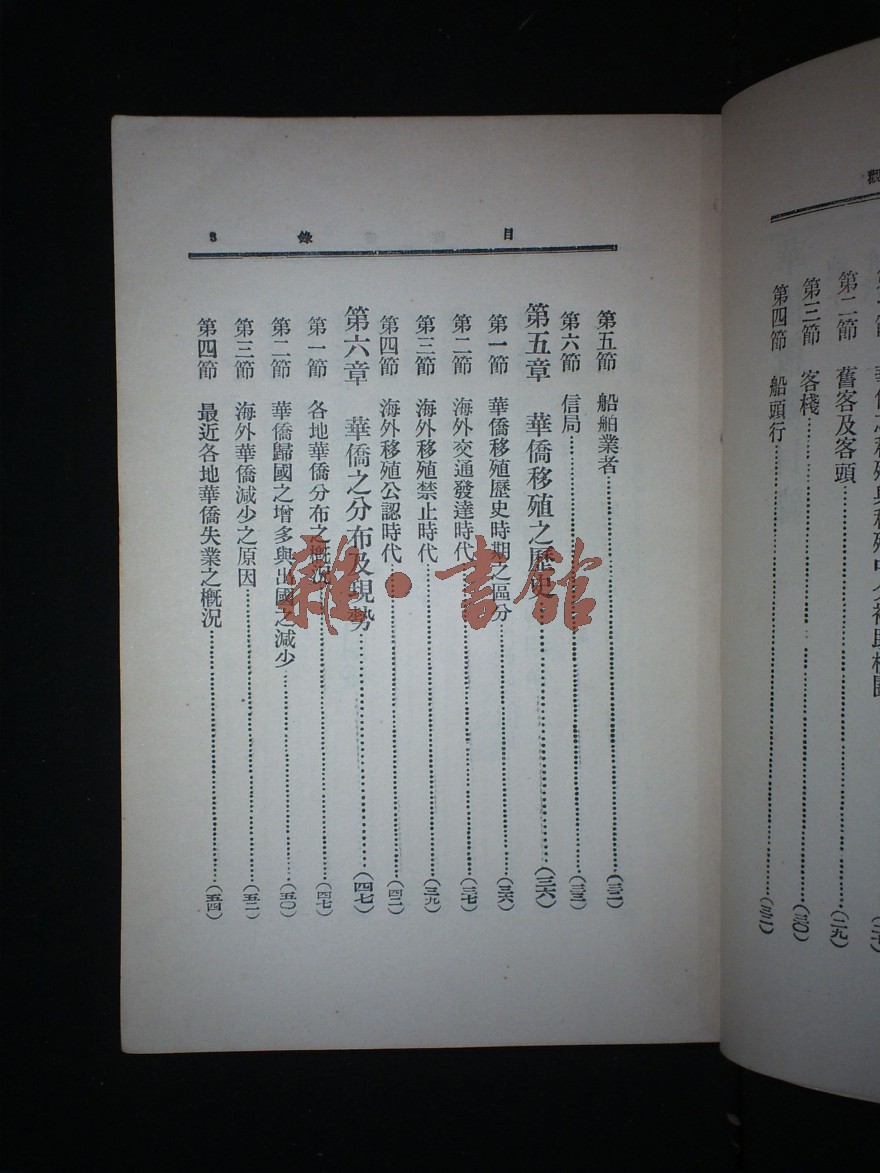 觀
第二節 舊客及客頭……(二九)
第三節 客棧……(三〇)
第四節 船頭行……
目 錄 3
第五節 船舶業者……(三二)
第六節 信局……(三三)
第五章 華僑移殖之歷史……(三六)
第一節 華僑移殖歷史時期之區分……(三六)
第二節 海外交通發達時代……(三七)
第三節 海外移殖禁止時代……(三九)
第四節 海外移殖公認時代……(四二)
第六章 華僑之分布及現勢……(四七)
第一節 各地華僑分布之概況……(四七)
第二節 華僑歸國之增多與出國之減少……(五〇)
第三節 海外華僑減少之原因……(五二)
第四節 最近各地華僑失業之概況……(五四)
雜·書館